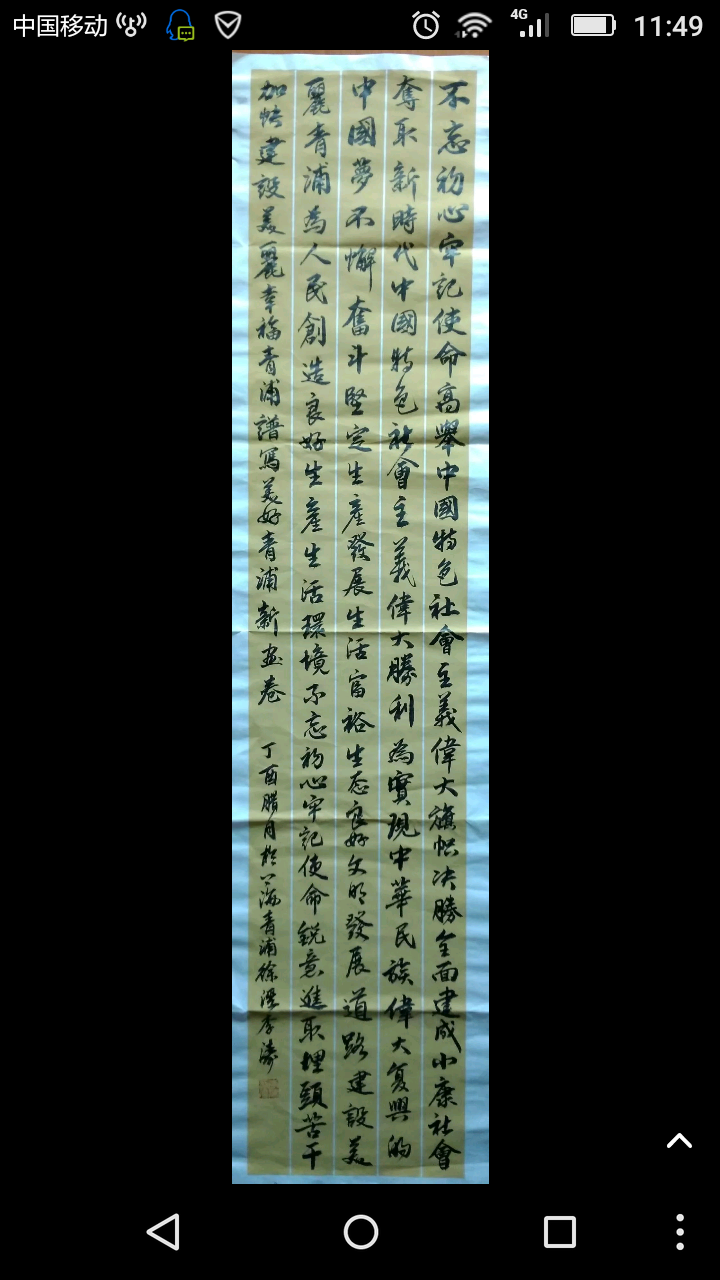 中国移动
4G
11:49
不忘初心牢記使命高舉中國特色社會主義偉大旗幟決勝全面建成小康社會
奪取新時代中國特色社會主義偉大勝利為實現中華民族偉大复興的
中國夢不懈奮斗堅定生產發展生活富裕生态良好文明發展道路建設美
麗青浦為人民創造良好生產生活環境不忘初心牢記使命銳意進取埋頭苦干
加快建設美麗幸福青浦譜寫美好青浦新画卷
丁酉腊月於上海青浦徐涇李濤